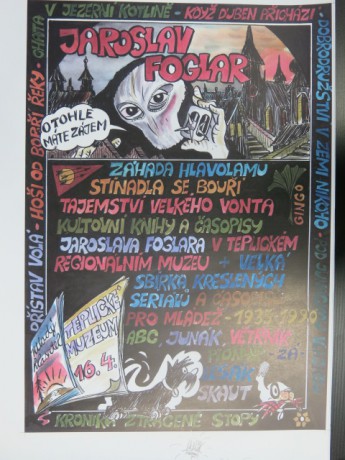 V JEZERNÍ KOTLINĚ - KDYŽ DUBEN PŘICHÁZÍ -
JAROSLAV
FOGLAR
O TOHLE
MÁTE ZÁJEM
ZÁHADA HLAVOLAMU
STÍNADLA SE BOUŘÍ
TAJEMSTVÍ VELKÉHO VONTA
KULTOVNÍ KNIHY A ČASOPISY
JAROSLAVA FOGLARA V TEPLICKÉM
REGIONÁLNÍM MUZEU + VELKÁ
SBÍRKA KRESLENÝCH
SERIÁLŮ A ČASOPISŮ
PRO MLÁDEŽ - 1935-1990
ABC, JUNÁK, VĚTRNÍK
SKAUT
GINGO
TEPLICKÉ
MUZEUM
16.4.
KRONIKA ZTRACENÉ STOPY
PŘÍSTAV VOLÁ - HOŠI OD BOBŘÍ ŘEKY - CHATA
DOBRODRUŽSTVÍ V ZEMI NIKOHO